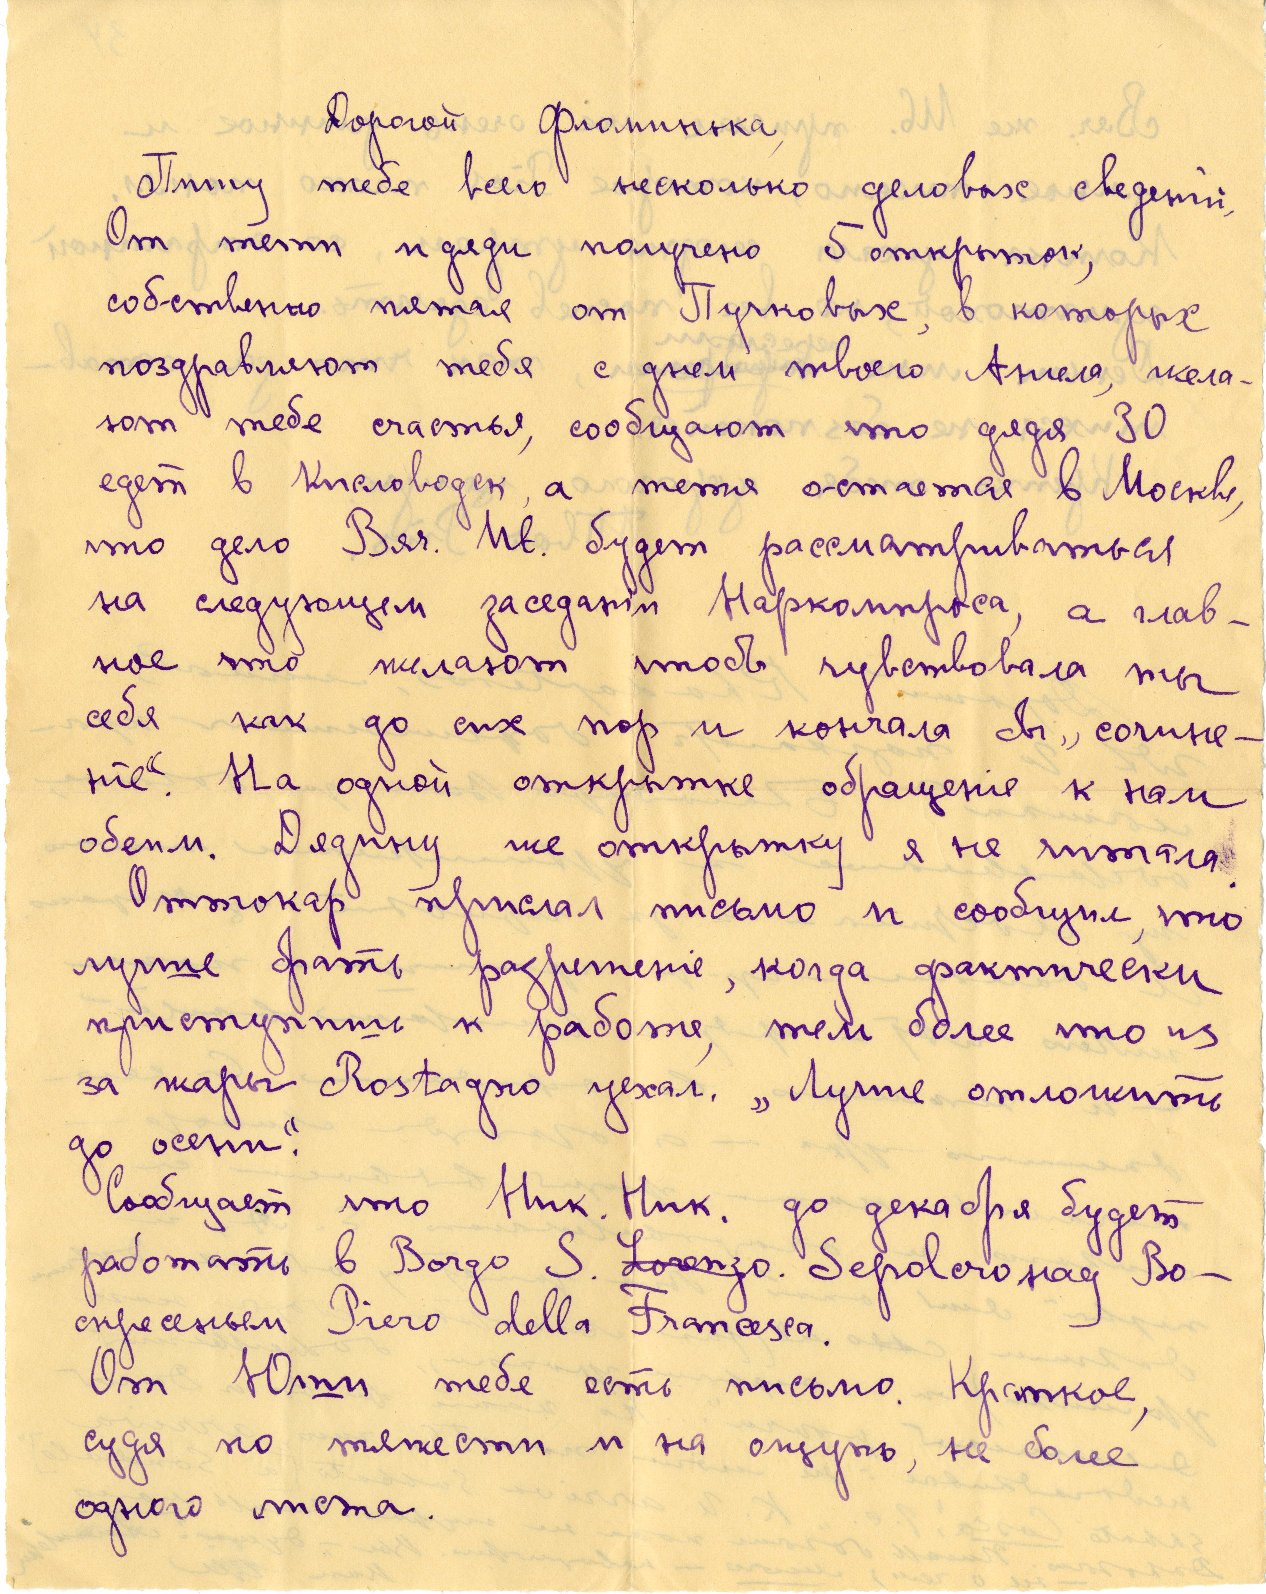 Дорогой Фламинька,
Пишу тебе всего несколько деловых сведений,
От тети и дяди получено 5 открыток,
собственно пятая от Пучковых, в которых
поздравляют тебя с днем твоего Ангела, жела-
ют тебе счастья, сообщают что дядя 30
едет в Кисловодск, а тетя остается в Москве,
что дело Вяч. Ив. будет рассматриваться
на следующем заседанiи Наркомпроса, а глав-
ное что желают чтобы чувствовала ты
себя как до сих пор и кончала бы „сочине-
нiе“. На одной открытке обращенiе к нам
обеим. Дядину же открытку я не читала.
Оттокар прислал письмо и сообщил, что
лучше брать разрешенiе, когда фактически
приступишь к работе, тем более что из
за жары Rostagno уехал. „Лучше отложить
до осени“.
Сообщает что Ник. Ник. до декабря будет
работать в Borgo S. Lorenzo. Sepolcro над Во-
скресеньем Piero della Francesca.
От Юши тебе есть письмо. Краткое,
судя по тяжести и на ощупь, не более
одного листа.